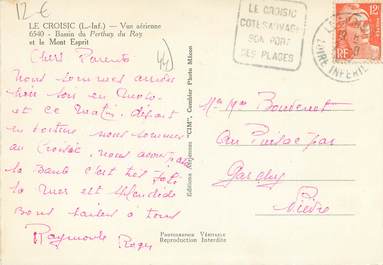 12 €
LE CROISIC (L.-Inf.) — Vue aérienne
6540 - Bassin du Perthuy du Roy
et le Mont Esprit
44)
Chers Parents
Nous sommes arrivés
hier soir en moto
et ce matin, départ
en voiture nous sommes
au Croisic, nous avons
la santé c'est
la mer est splendide
Bons baisers à tous
Raymonde Roger
Editions Artistiques "CIM", Combier Photo Mâcon
PHOTOGRAPHIE VÉRITABLE
Reproduction Interdite
LE CROISIC
COTE SAUVAGE
SON PORT
SES PLAGES
12F
RF
LOIRE INFERIE
Mr Mme
Au par
Garchy
Nièvre